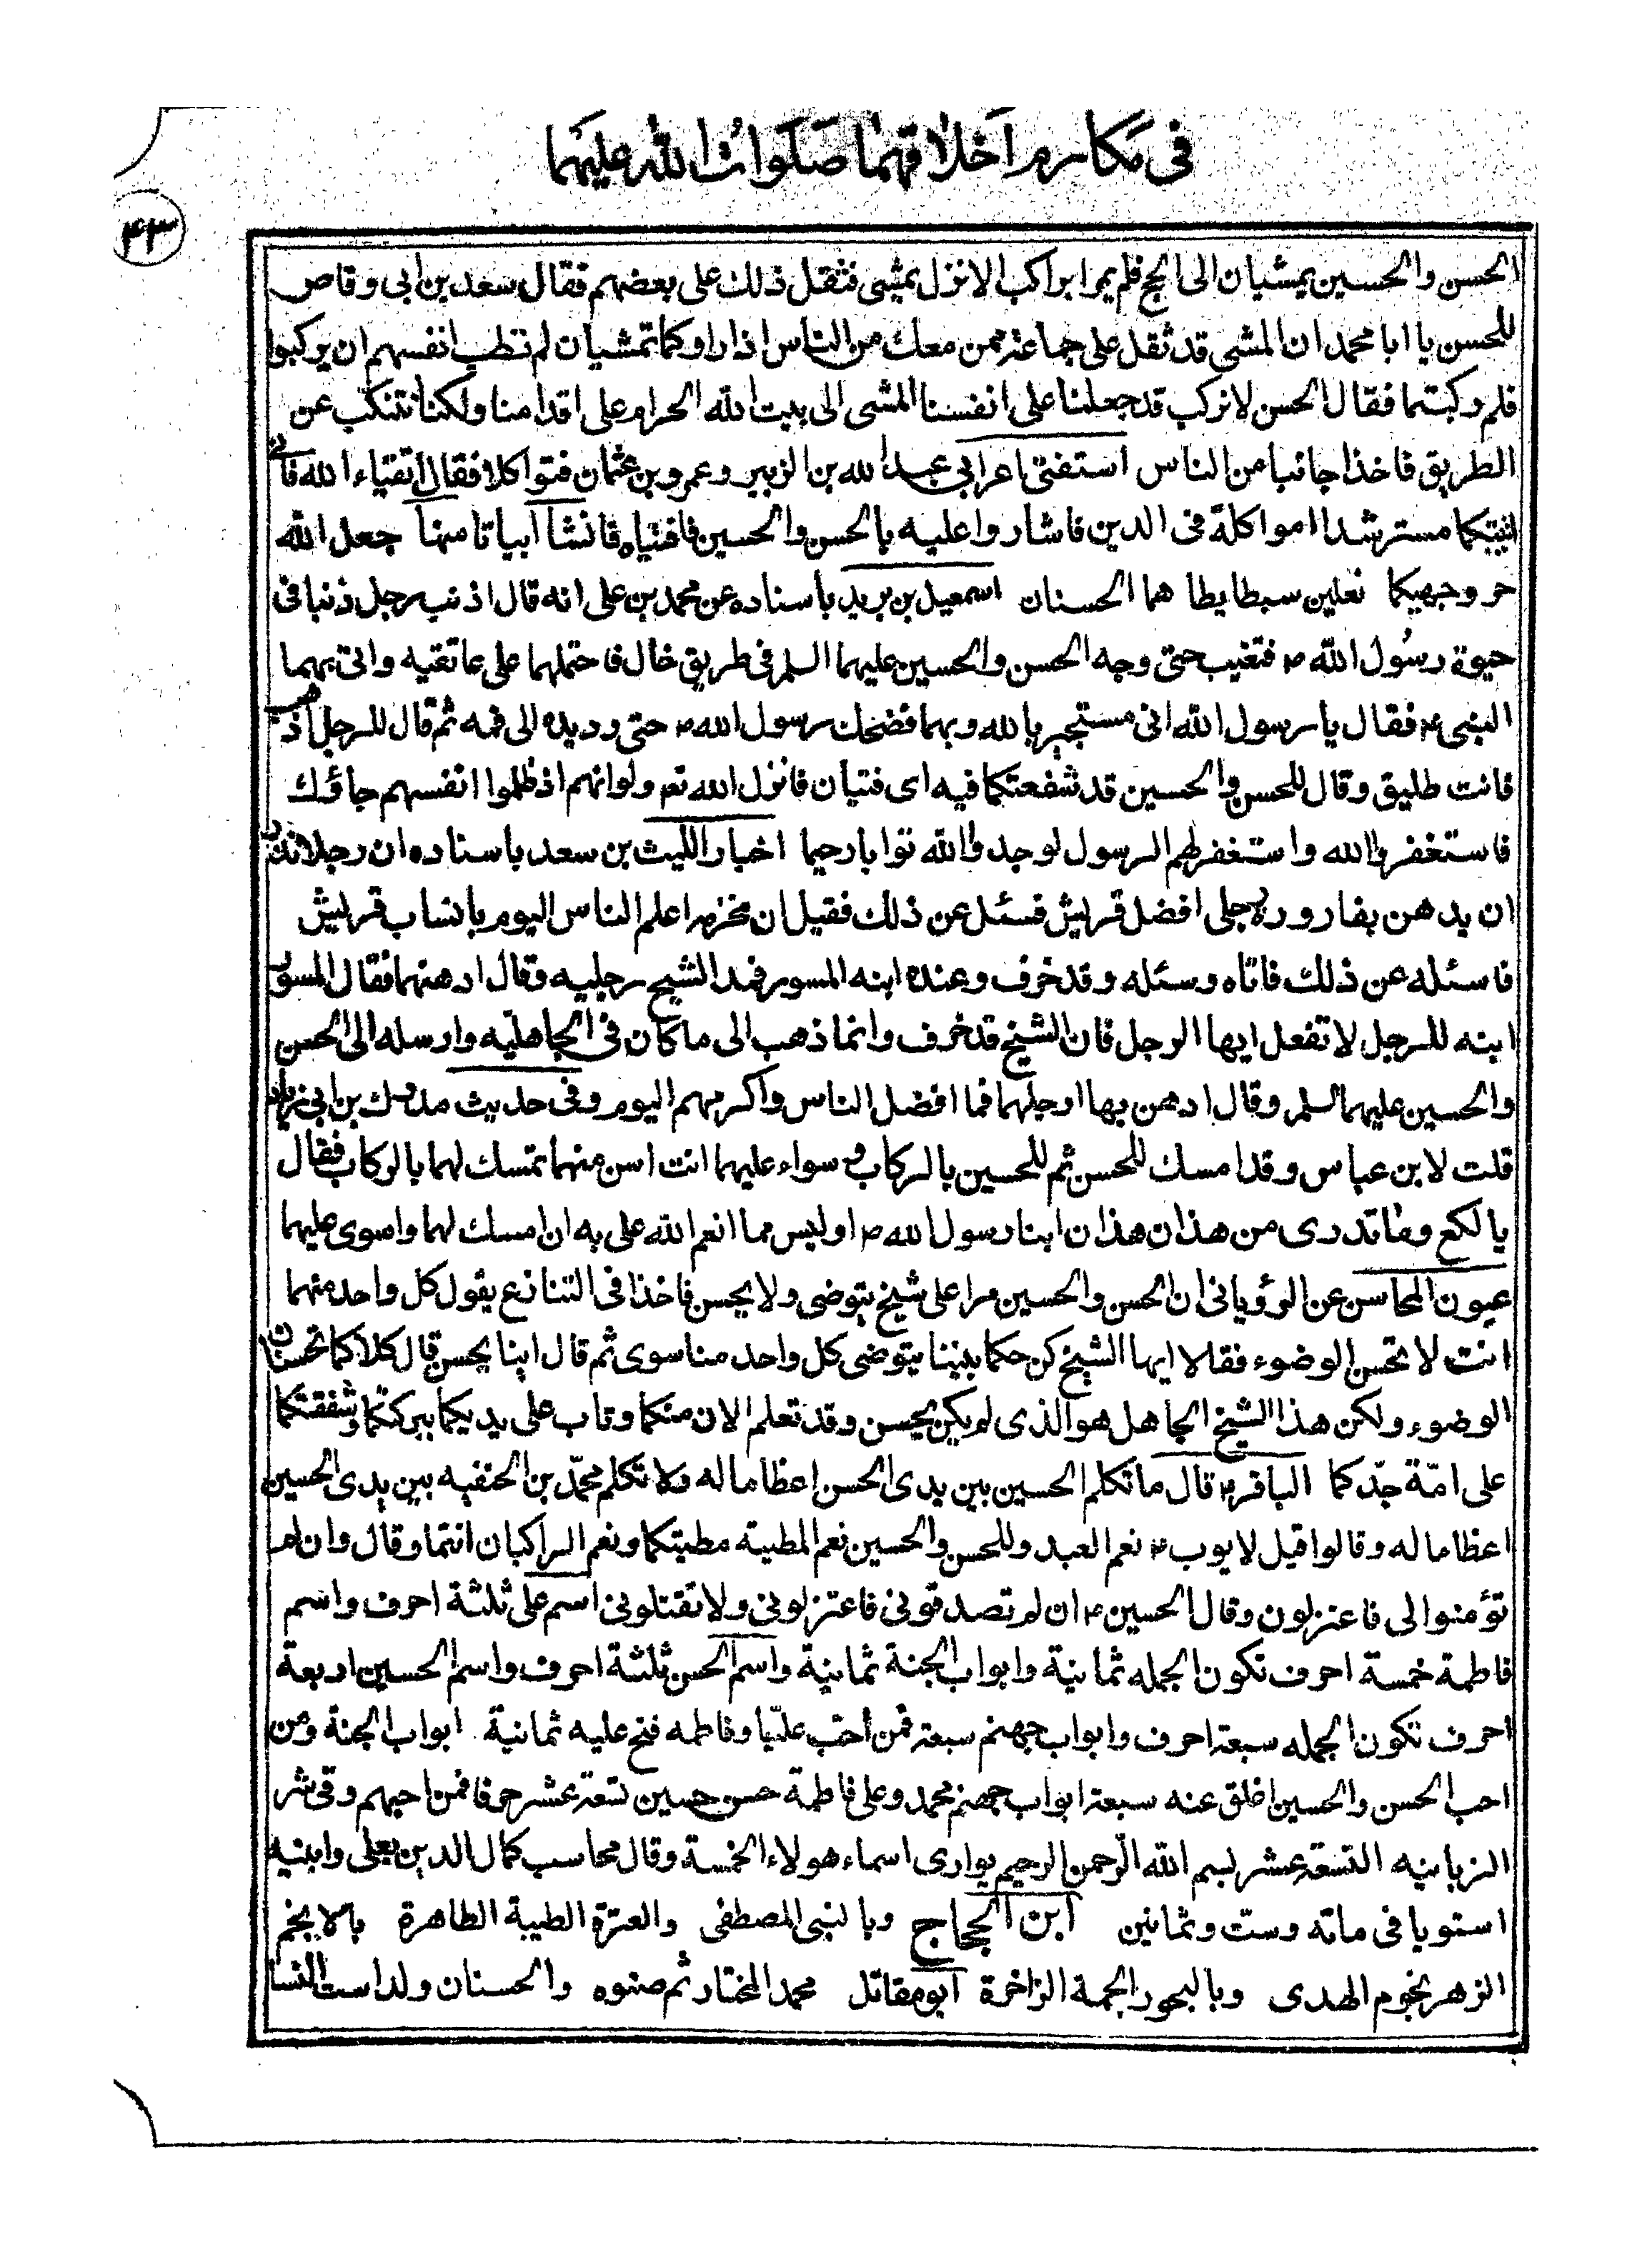 في مكارم اخلاقهما صلوات الله عليهما
۴۳
الحسن والحسين يمشيان الى الحج فلم يمرا براكب الا نزل يمشى فثقل ذلك على بعضهم فقال سعد بن ابى وقاص
للحسن يا ابا محمد ان المشى قد ثقل على جماعة ممن معك من الناس اذا راوكما تمشيان لم تطب انفسهم ان يركبوا
فلم ركبتما فقال الحسن لا نركب قد جعلنا على انفسنا المشى الى بيت الله الحرام على اقدامنا ولكنا نتنكب عن
الطريق فاخذا جانبا من الناس استفتى اعرابى عبد الله بن الزبير وعمرو بن عثمان فتواكلا فقال اتقياء الله فانى
اتيتكما مسترشدا امواكلة فى الدين فاشاروا عليه بالحسن والحسين فافتياه فانشا ابياتا منها جعل الله
حر وجهيكما نعلين سبطا يطا هما الحسنان اسمعيل بن بريد باسناده عن محمد بن على انه قال اذنب رجل ذنبا فى
حيوة رسول الله ص فتغيب حتى وجه الحسن والحسين عليهما السلم فى طريق خال فاحتملهما على عاتقيه واتى بهما
النبى ص فقال يا رسول الله انى مستجير بالله وبهما فضحك رسول الله ص حتى رد يده الى فمه ثم قال للرجل اذهب
فانت طليق وقال للحسن والحسين قد شفعتكما فيه اى فتيان فانزل الله تع ولو انهم اذ ظلموا انفسهم جاؤك
فاستغفروا الله واستغفر لهم الرسول لوجدوا الله توابا رحيما اخبار الليث بن سعد باسناده ان رجلا نذر
ان يدهن بقارورة رجلى افضل قريش فسئل عن ذلك فقيل ان مخرمة اعلم الناس اليوم بانساب قريش
فاسئله عن ذلك فاتاه وسئله وقد خرف وعنده ابنه المسور فمد الشيخ رجليه وقال ادهنهما فقال المسور
ابنه للرجل لا تفعل ايها الرجل فان الشيخ قد خرف وانما ذهب الى ما كان فى الجاهليه وارسله الى الحسن
والحسين عليهما السلم وقال ادهن بها ارجلهما فهما افضل الناس واكرمهم اليوم وفى حديث مدرك بن ابى زياد
قلت لابن عباس وقد امسك للحسن ثم للحسين بالركاب وسواء عليهما انت اسن منهما تمسك لهما بالركاب فقال
يا لكع وما تدرى من هذان هذان ابنا رسول الله ص اوليس مما انعم الله على به ان امسك لهما واسوى عليهما
عيون المحاسن عن الرؤيانى ان الحسن والحسين مرا على شيخ يتوضى ولا يحسن فاخذا فى التنازع يقول كل واحد منهما
انت لا تحسن الوضوء فقالا ايها الشيخ كن حكما بيننا يتوضى كل واحد منا سوى ثم قال اينا يحسن قال كلاكما تحسنان
الوضوء ولكن هذا الشيخ الجاهل هو الذى لم يكن يحسن وقد تعلم الان منكما وتاب على يديكما ببركتكما وشفقتكما
على امّة جدّكما الباقر ع قال ما تكلم الحسين بين يدى الحسن اعظاما له ولا تكلم محمّد بن الحنفيه بين يدى الحسين
اعظاما له وقالوا قيل لايوب ع نعم العبد وللحسن والحسين نعم المطية مطيتكما ونعم الراكبان انتما وقال وان لم
تؤمنوا لى فاعتزلون وقال الحسين ع ان لم تصدقونى فاعتزلونى ولا تقتلونى اسم على ثلثة احرف واسم
فاطمة خمسة احرف تكون الجمله ثمانية وابواب الجنة ثمانية واسم الحسن ثلثة احرف واسم الحسين اربعة
احرف تكون الجمله سبعة احرف وابواب جهنم سبعة فمن احّب عليّا وفاطمه فتح عليه ثمانية ابواب الجنة ومن
احب الحسن والحسين اغلق عنه سبعة ابواب جهنم محمد وعلى فاطمة حسن حسين تسعة عشر حرفا فمن احبهم وقى شر
الزبانيه التسعة عشر بسم الله الرّحمن الرحيم يوارى اسماء هولاء الخمسة وقال محاسب كمال الدين بعلى وابنيه
استويا فى ماته وست وثمانين ابن الحجاج وبالنبى المصطفى والعترة الطيبة الطاهرة بالانجم
الزهر نجوم الهدى وبالبحور الجمة الزاخرة ابو مقاتل محمد المختار ثم صنوه والحسنان ولدا ست النسا